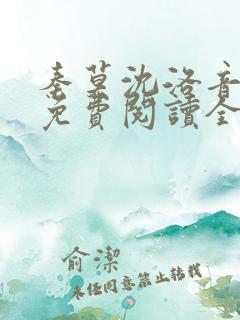 秦莫沈洛音
免費閱讀全
俞潔
未经同意禁止转载